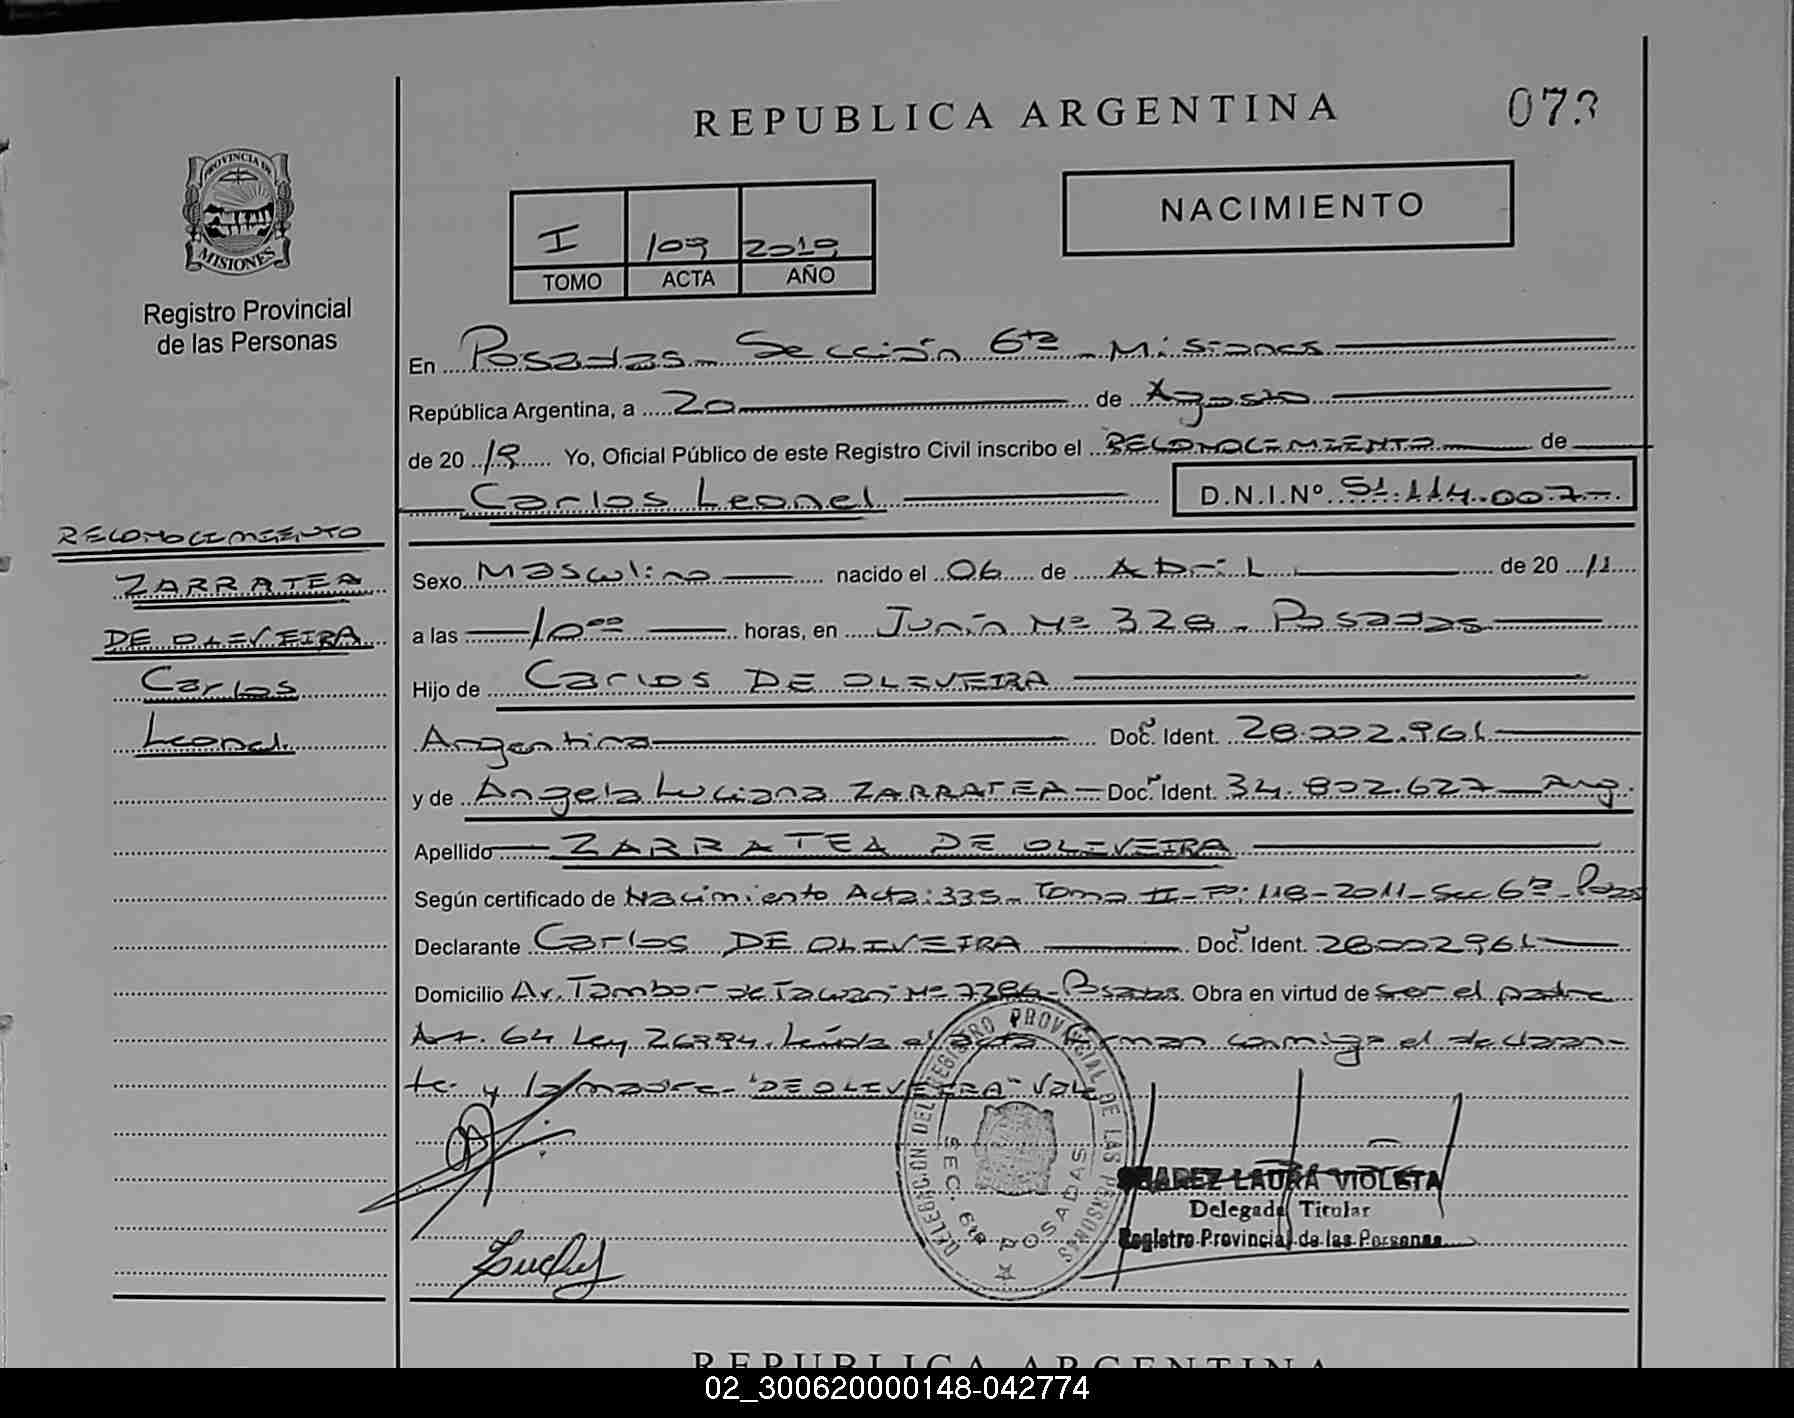 REPUBLICA ARGENTINA
073
PROVINCIA DE
MISIONES
Registro Provincial
de las Personas
I 109 2019
TOMO ACTA AÑO
NACIMIENTO
En Posadas - Sección 6ta - Misiones
República Argentina, a 20 de Agosto
de 2019 Yo, Oficial Público de este Registro Civil inscribo el RECONOCIMIENTO de
Carlos Leonel D.N.I.Nº 51.114.007-.
RECONOCIMIENTO
ZARRATEA
DE OLIVEIRA
Carlos
Leonel.
Sexo Masculino nacido el 06 de Abril de 2011
a las 10:00 horas, en Junín Nº 328 - Posadas
Hijo de Carlos DE OLIVEIRA
Argentina Doc. Ident. 28.002.961
y de Angela Luciana ZARRATEA - Doc. Ident. 34.802.627 Arg.
Apellido ZARRATEA DE OLIVEIRA
Según certificado de Nacimiento Acta: 335 - Tomo II - Fº: 118 - 2011 - Sec 6ta - Posas
Declarante Carlos DE OLIVEIRA Doc. Ident. 28.002.961
Domicilio Av. Tambor de Tacuarí Nº 7286 - Posadas. Obra en virtud de ser el padre
Art. 64 Ley 26994. Leída el acta firman conmigo el declaran-
te y la madre - "DE OLIVEIRA" Vale
DELEGACIÓN DEL REGISTRO PROVINCIAL DE LAS PERSONAS
SEC. 6ta POSADAS
SUAREZ LAURA VIOLETA
Delegada Titular
Registro Provincial de las Personas
REPUBLICA ARGENTINA
02_300620000148-042774